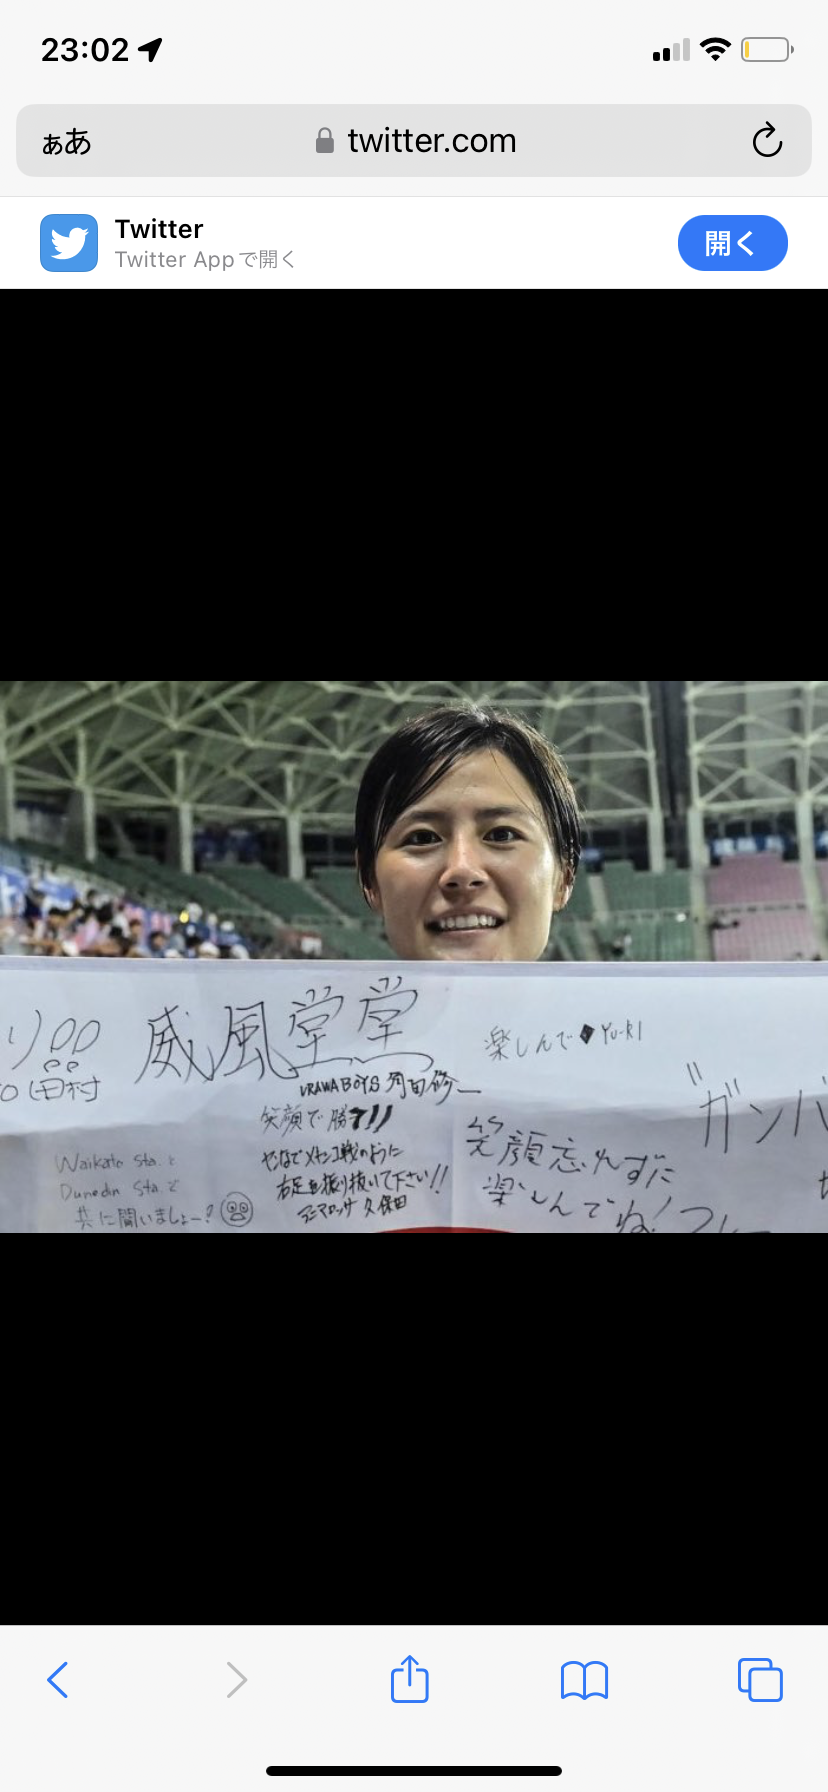 23:02
ぁあ twitter.com
Twitter
Twitter Appで開く
開く
威風堂堂
楽しんで♦YU-KI
田村
URAWA BOYS 角田修一
笑顔で勝て!!
"ガンバ
Waikato Sta. と
Dunedin Sta. で
共に闘いましょー?
右足を振り抜いて下さい!!
久保田
笑顔忘れずに
楽しんでね!